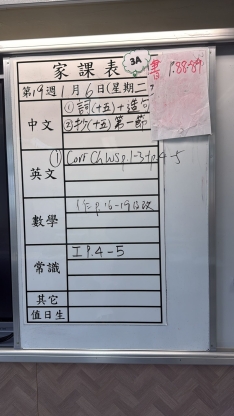 家課表
3A
第19週1月6日(星期二
書 P.88-89
中文
①詞(十五)+造句
②抄(十五)第一節
英文
① Corr Ch WS p.1-3 + p.4-5
數學
作 P.16-19 改
常識
工 P.4-5
其它
值日生